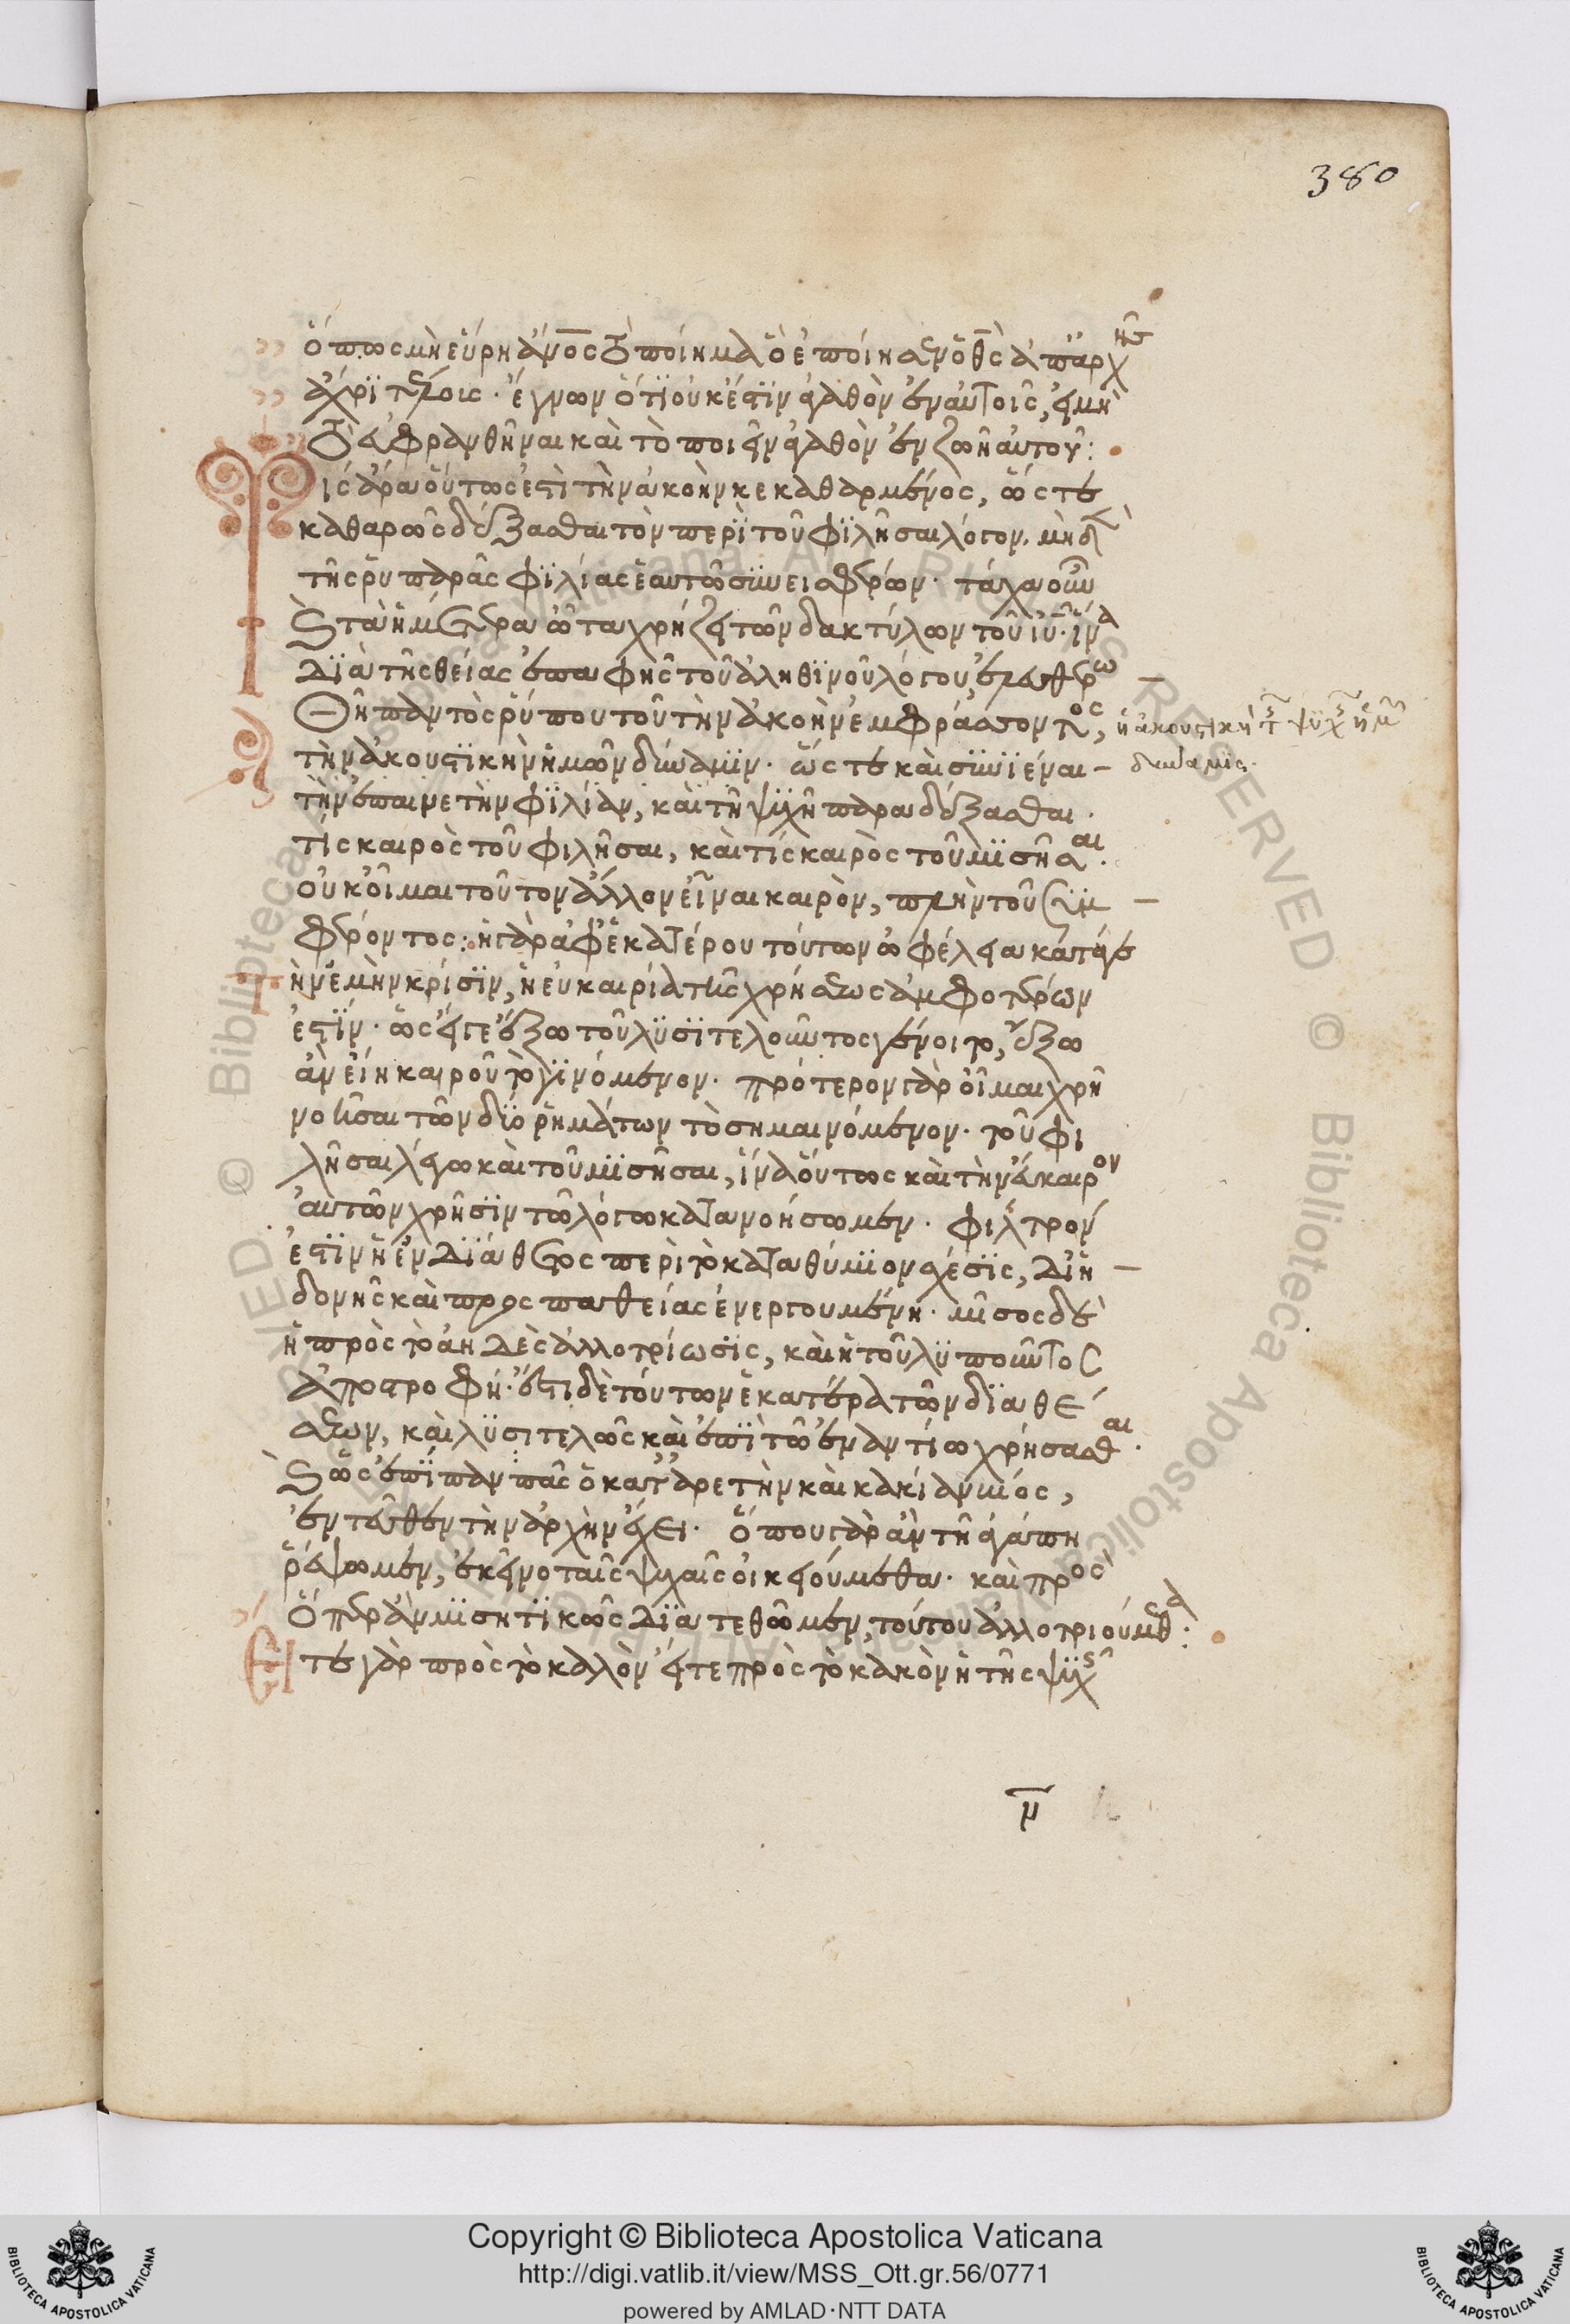 380
ὅπως μὴ εὕρη ἄνος τὸ ποίημα ὃ ἐποίησεν ὁ θς ἀπ' ἀρχῆς
ἄχρι τέλους· ἔγνων ὅτι οὐκ ἔστιν ἀγαθὸν ἐν αὐτοῖς, εἰ μὴ
τὸ εὐφρανθῆναι καὶ τὸ ποιεῖν ἀγαθὸν ἐν ζωῆ αὐτοῦ:
Τίς ἄρα οὕτως ἐστὶ τὴν ἀκοὴν κεκαθαρμένος, ὥστε
καθαρῶς δέξασθαι τὸν περὶ τοῦ φιλῆσαι λόγον, μηδὲν
τῆς ῥυπαρᾶς φιλίας ἑαυτῶ συνεισφέρων· τάχα οὖν
καὶ τὰ ἡμέτερα ὦτα χρήζει τῶν δακτύλων τοῦ ιυ· ἵνα
διὰ τῆς θείας ἐπαφῆς τοῦ ἀληθινοῦ λόγου, ἐλευθερω
θῆ παντὸς ῥύπου τοῦ τὴν ἀκοὴν ἐμφράσσοντος,
ἡ ἀκουστικὴ τῆς ψυχῆς ἡμῶν
δύναμις.
τὴν ἀκουστικὴν ἡμῶν δύναμιν· ὥστε καὶ συνιέναι
τὴν ἐπαινετὴν φιλίαν, καὶ τῆ ψυχῆ παραδέξασθαι·
τίς καιρὸς τοῦ φιλῆσαι, καὶ τίς καιρὸς τοῦ μισῆσαι.
οὐκ οἶμαι τοῦτον ἄλλον εἶναι καιρὸν, πλὴν τοῦ συμ
φέροντος: ἡ γὰρ ἀφ' ἑκατέρου τούτων ὠφέλεια κατά γε
τὴν ἐμὴν κρίσιν, ἡ εὐκαιρία τῆς χρήσεως ἀμφοτέρων
ἐστίν· ὡς εἴγε ἔξω τοῦ λυσιτελοῦντος γένοιτο, ἔξω
ἂν εἴη καιροῦ τὸ γινόμενον· πρότερον γὰρ οἶμαι χρῆ
νοῆσαι τῶν δύο ῥημάτων τὸ σημαινόμενον· τοῦ φι
λῆσαι λέγω καὶ τοῦ μισῆσαι, ἵνα οὕτως καὶ τὴν εὔκαιρον
αὐτῶν χρῆσιν τῶ λόγω κατανοήσωμεν· φίλτρον
ἐστὶν ἡ ἐνδιάθετος περὶ τὸ καταθύμιον σχέσις, δι' ἡ
δονῆς καὶ προσπαθείας ἐνεργουμένη· μῖσος δὲ
ἡ πρὸς τὸ ἀηδὲς ἀλλοτρίωσις, καὶ ἡ τοῦ λυποῦντος
ἀποστροφή· ἔστι δὲ τούτων ἑκατέρα τῶν διαθέ
σεων, καὶ λυσιτελῶς καὶ ἐπὶ τῶ ἐναντίω χρήσασθαι.
καὶ ὡς ἐπίπαν πᾶς ὁ κατ' ἀρετὴν καὶ κακίαν βίος,
ἐντεῦθεν τὴν ἀρχὴν ἔχει· ὅπου γὰρ ἂν τῆ ἀγάπη
ῥέψωμεν, ἐκείνο ταῖς ψυχαῖς οἰκειούμεθα· καὶ πρὸς
ὅπερ ἂν μισητικῶς διατεθῶμεν, τούτου ἀλλοτριούμεθα:
Εἴτε γὰρ πρὸς τὸ καλὸν, εἴτε πρὸς τὸ κακὸν ἡ τῆς ψυχῆς
μ
Copyright © Biblioteca Apostolica Vaticana
http://digi.vatlib.it/view/MSS_Ott.gr.56/0771
powered by AMLAD·NTT DATA